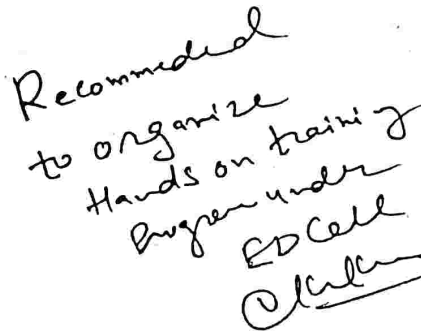 Recommeded
to organize
Hands on training
Program under
ED Cell